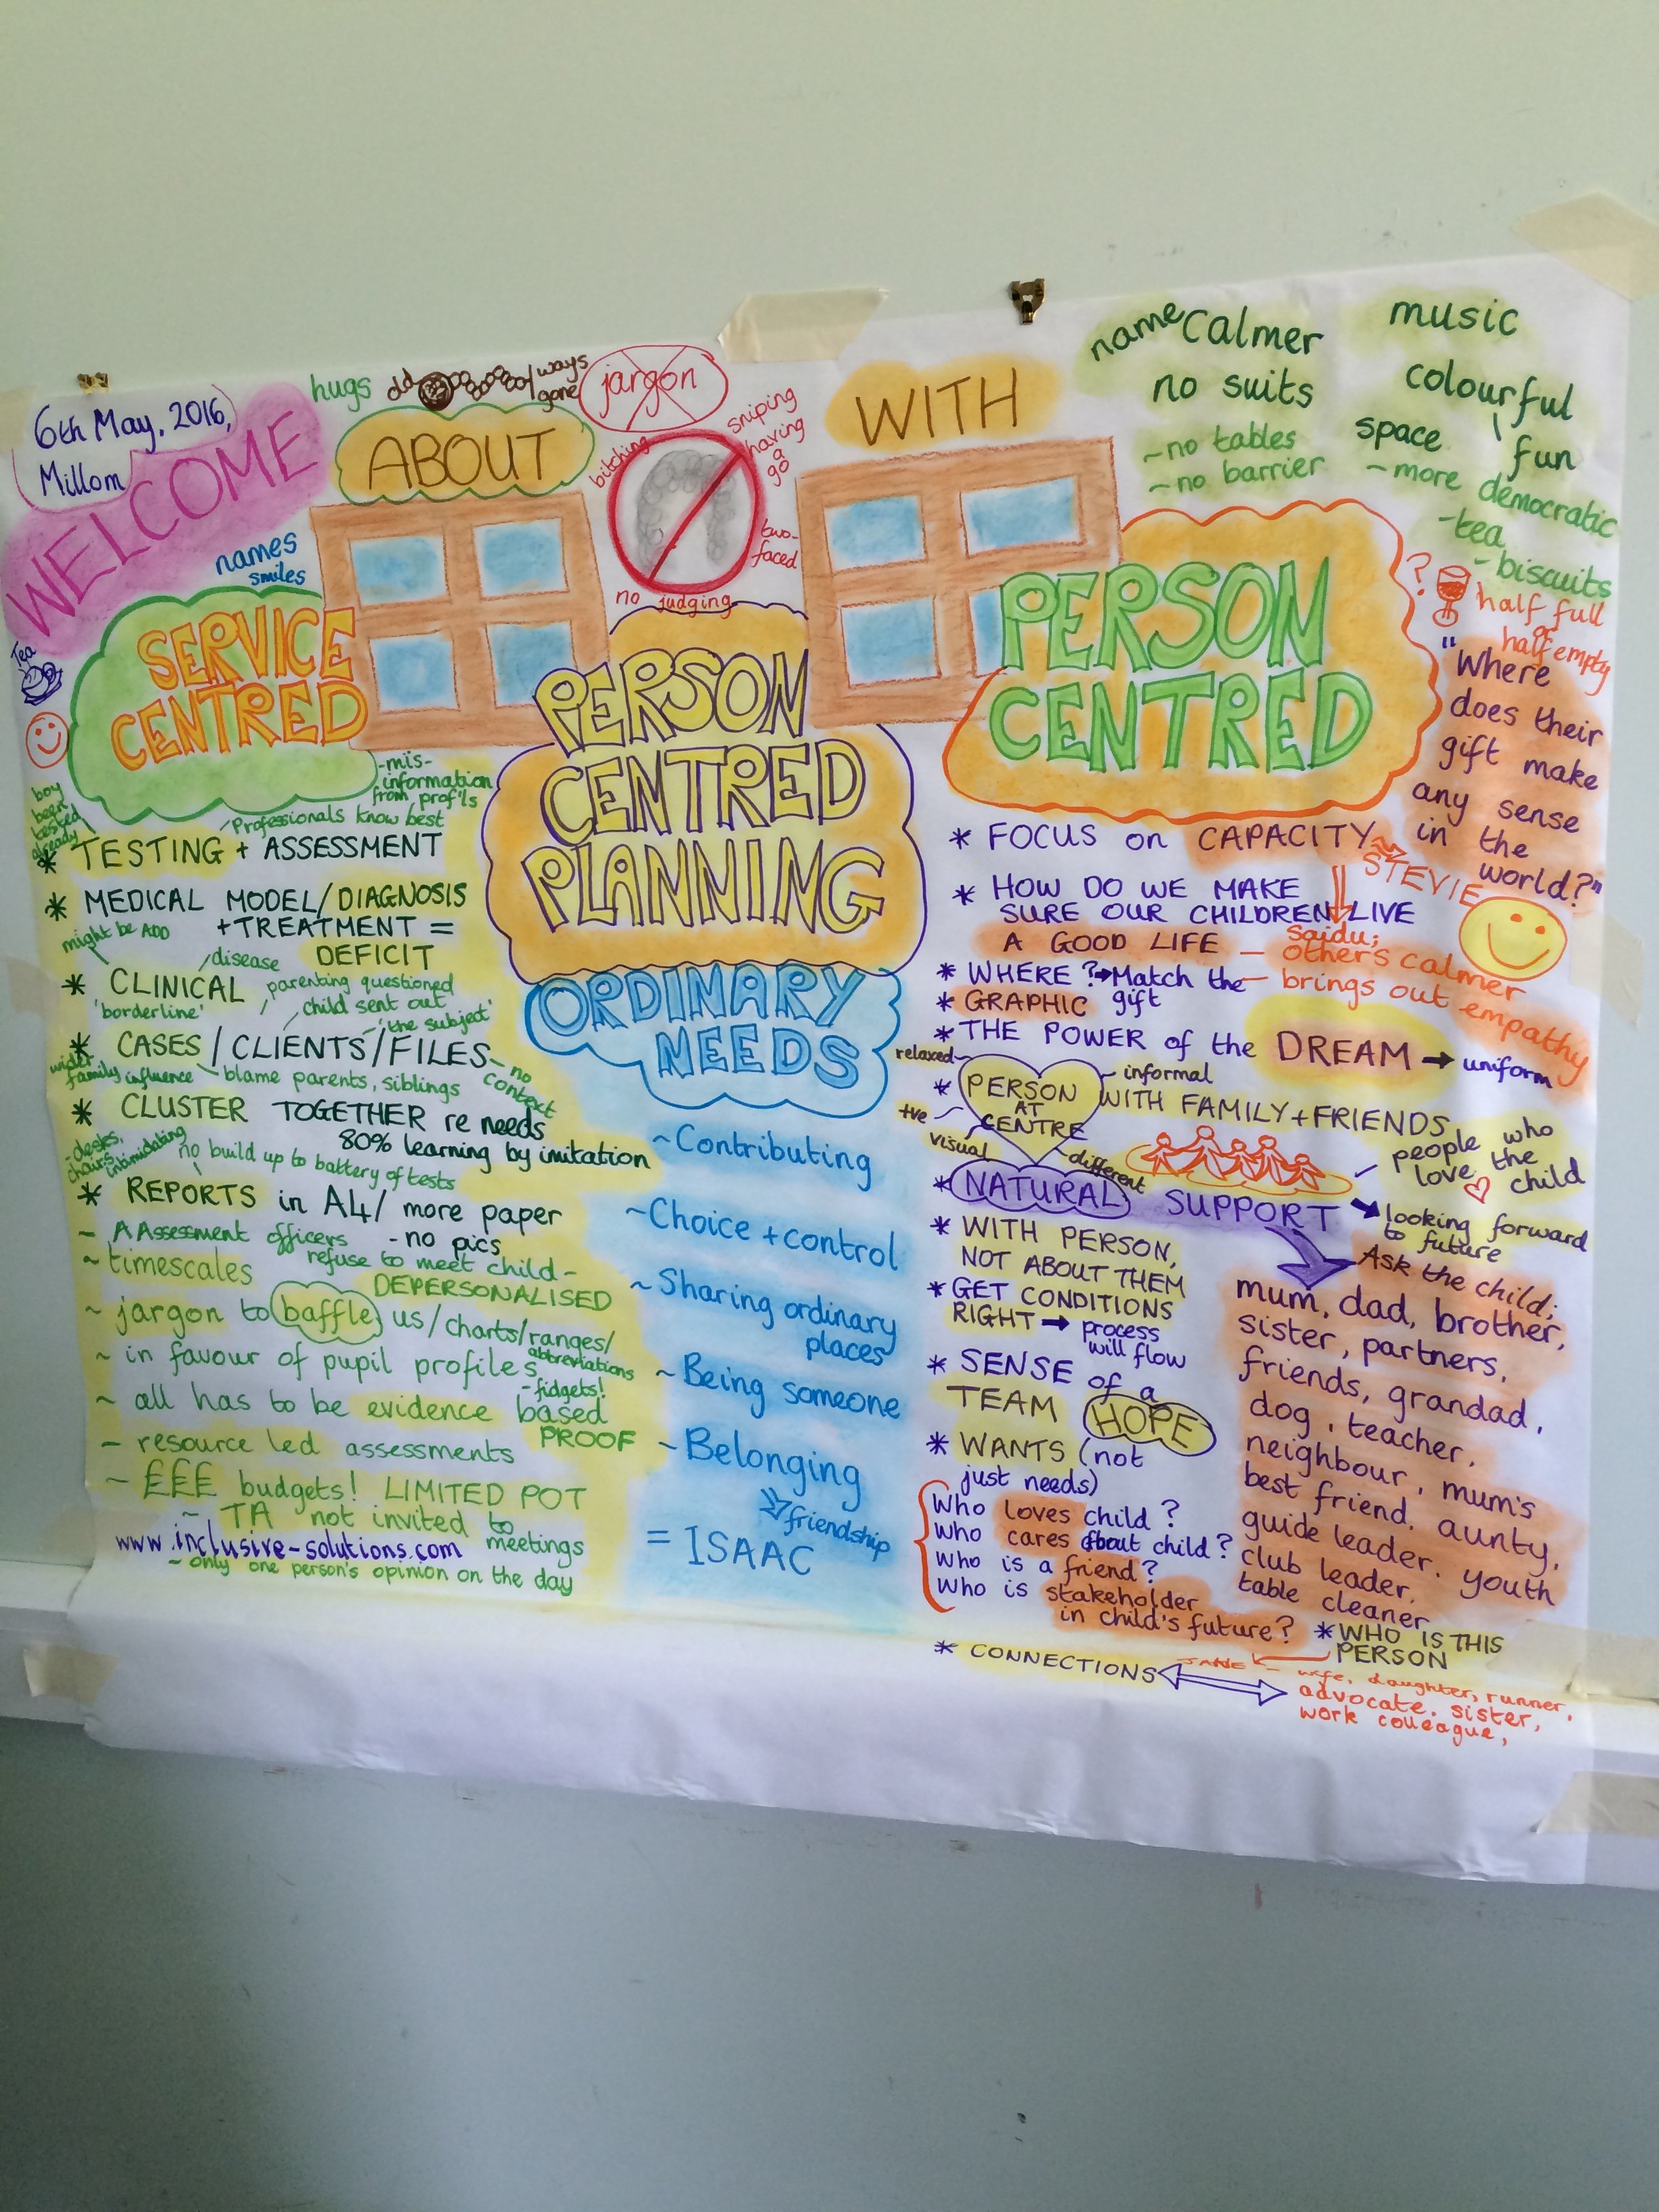 6th May, 2016,
Millom
WELCOME
hugs
ways
gone
jargon
ABOUT
bitching
sniping
having
a
go
two-
faced
no judging
names
smiles
Tea
SERVICE
CENTRED
boy
been
tested
already
-mis-
information
from prof'ls
Professionals know best
* TESTING + ASSESSMENT
* MEDICAL MODEL/DIAGNOSIS
+TREATMENT =
DEFICIT
might be ADD
disease
* CLINICAL
'borderline'
parenting questioned
child sent out
'the subject'
* CASES/CLIENTS/FILES
- no
context
wider
family influence
blame parents, siblings
* CLUSTER TOGETHER re needs
80% learning by imitation
-desks,
chairs
intimidating
no build up to battery of tests
* REPORTS in A4/ more paper
- no pics
- AAssessment officers
refuse to meet child-
~ timescales
DEPERSONALISED
~ jargon to baffle us/charts/ranges/
abbreviations
~ in favour of pupil profiles
- fidgets!
~ all has to be evidence based
PROOF
- resource led assessments
~ £££ budgets! LIMITED POT
~ TA not invited to
meetings
www.inclusive-solutions.com
~ only one person's opinion on the day
PERSON
CENTRED
PLANNING
ORDINARY
NEEDS
~Contributing
~Choice + control
~Sharing ordinary
places
~Being someone
~Belonging
friendship
= ISAAC
WITH
name
Calmer
no suits
~no tables
~no barrier
music
colourful
space
fun
~more democratic
-tea
-biscuits
PERSON
CENTRED
?
half full
or
half empty
"Where
does their
gift make
any sense
in the
world?"
* FOCUS on CAPACITY
STEVIE
* HOW DO WE MAKE
SURE OUR CHILDREN LIVE
A GOOD LIFE
Saidu;
- others calmer
- brings out empathy
* WHERE? Match the
gift
* GRAPHIC
* THE POWER of the DREAM → uniform
relaxed
informal
+ve
visual
different
* PERSON
AT
CENTRE
WITH FAMILY+FRIENDS
people who
love the
child
* NATURAL SUPPORT
looking forward
to future
* WITH PERSON,
NOT ABOUT THEM
* GET CONDITIONS
RIGHT → process
will flow
* SENSE of a
TEAM
HOPE
* WANTS (not
just needs)
Who loves child?
Who cares about child?
Who is a friend?
Who is stakeholder
in child's future?
Ask the child;
mum, dad, brother,
sister, partners,
friends, grandad,
dog, teacher,
neighbour, mum's
best friend. aunty,
guide leader. youth
club leader.
table cleaner
* WHO IS THIS
PERSON
* CONNECTIONS
JANE - wife, daughter, runner,
advocate. sister,
work colleague,